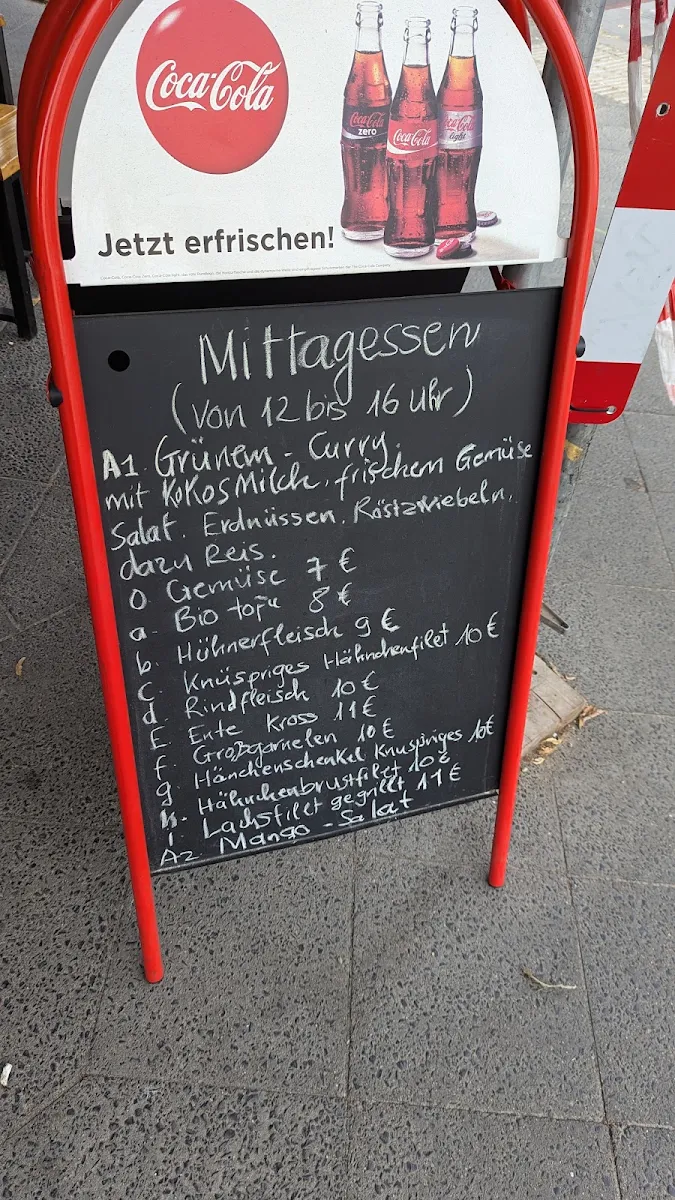 Coca-Cola
Coca-Cola
zero
Coca-Cola
Coca-Cola
light
Jetzt erfrischen!
Mittagessen
(von 12 bis 16 Uhr)
A1. Grünem - Curry.
mit Kokosmilch, frischem Gemüse
Salat. Erdnüssen. Röstzwiebeln.
dazu Reis.
0 Gemüse 7 €
a. Bio tofu 8 €
b. Hühnerfleisch 9 €
C. Knüspriges Hähnchenfilet 10 €
d. Rindfleisch 10 €
E. Ente kross 11 €
f. Großgarnelen 10 €
g. Hänchenschenkel knuspriges 10€
h. Hähnchenbrustfilet 10 €
i. Lachsfilet gegrillt 11 €
A2 Mango - Salat